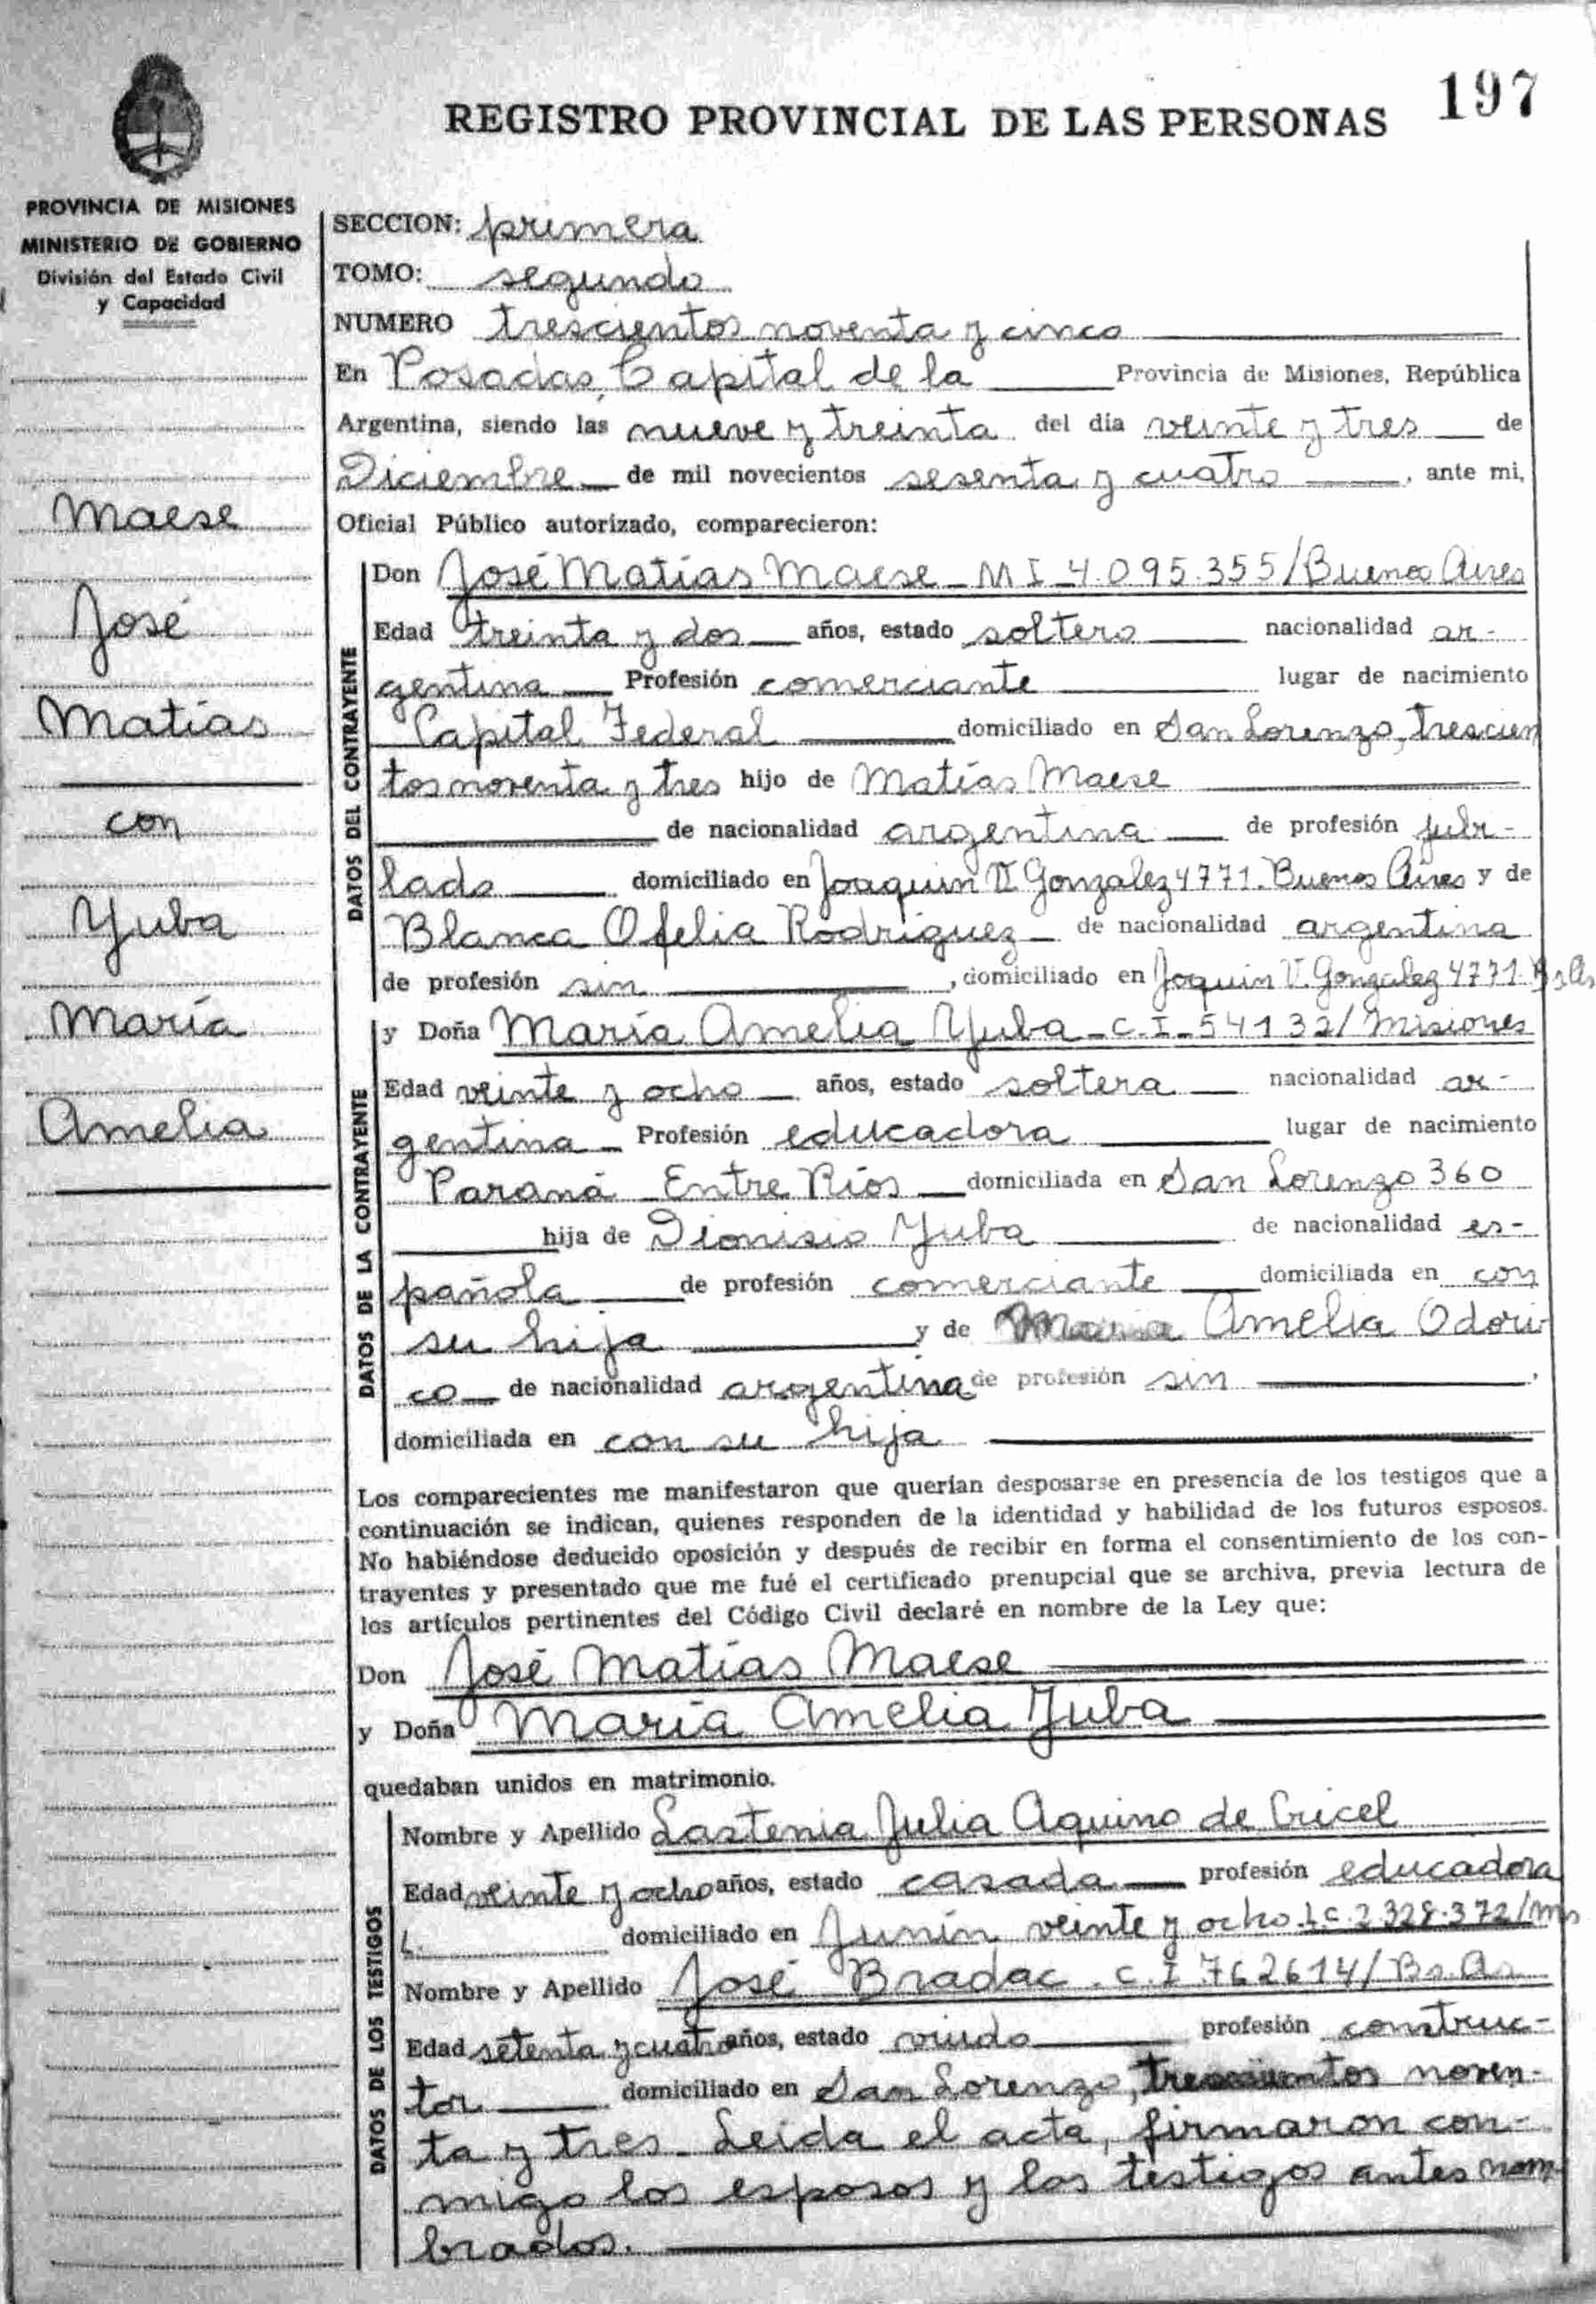 197
REGISTRO PROVINCIAL DE LAS PERSONAS
PROVINCIA DE MISIONES
MINISTERIO DE GOBIERNO
División del Estado Civil
y Capacidad
Maese
José
Matías
con
Yuba
María
Amelia
SECCION: primera
TOMO: segundo
NUMERO trescientos noventa y cinco
En Posadas, Capital de la Provincia de Misiones, República
Argentina, siendo las nueve y treinta del día veinte y tres de
Diciembre de mil novecientos sesenta y cuatro, ante mi,
Oficial Público autorizado, comparecieron:
DATOS DEL CONTRAYENTE
Don José Matías Maese - M I - 4.095.355/Buenos Aires
Edad treinta y dos años, estado soltero nacionalidad ar-
gentina Profesión comerciante lugar de nacimiento
Capital Federal domiciliado en San Lorenzo, trescien
tos noventa y tres hijo de Matías Maese
de nacionalidad argentina de profesión jubi-
lado domiciliado en Joaquin V. Gonzalez 4771. Buenos Aires y de
Blanca Ofelia Rodríguez de nacionalidad argentina
de profesión sin, domiciliado en Joquin V. Gonzalez 4771. Bs As
DATOS DE LA CONTRAYENTE
y Doña María Amelia Yuba - C. I - 54132/Misiones
Edad veinte y ocho años, estado soltera nacionalidad ar-
gentina Profesión educadora lugar de nacimiento
Paraná - Entre Ríos domiciliada en San Lorenzo 360
hija de Dionisio Yuba de nacionalidad es-
pañola de profesión comerciante domiciliada en con
su hija y de Maria Amelia Odori
co de nacionalidad argentina de profesión sin,
domiciliada en con su hija
Los comparecientes me manifestaron que querían desposarse en presencia de los testigos que a
continuación se indican, quienes responden de la identidad y habilidad de los futuros esposos.
No habiéndose deducido oposición y después de recibir en forma el consentimiento de los con-
trayentes y presentado que me fué el certificado prenupcial que se archiva, previa lectura de
los artículos pertinentes del Código Civil declaré en nombre de la Ley que:
Don José Matías Maese
y Doña María Amelia Yuba
quedaban unidos en matrimonio.
DATOS DE LOS TESTIGOS
Nombre y Apellido Lastenia Julia Aquino de Cricel
Edad veinte y ocho años, estado casada profesión educadora
domiciliado en Junín veinte y ocho L.C. 2.328.372/Ms
Nombre y Apellido José Bradac. C. I 762614/Bs. As
Edad setenta y cuatro años, estado viudo profesión construc-
tor domiciliado en San Lorenzo, trescientos noven-
ta y tres. Leida el acta, firmaron con-
migo los esposos y los testigos antes nom
brados.